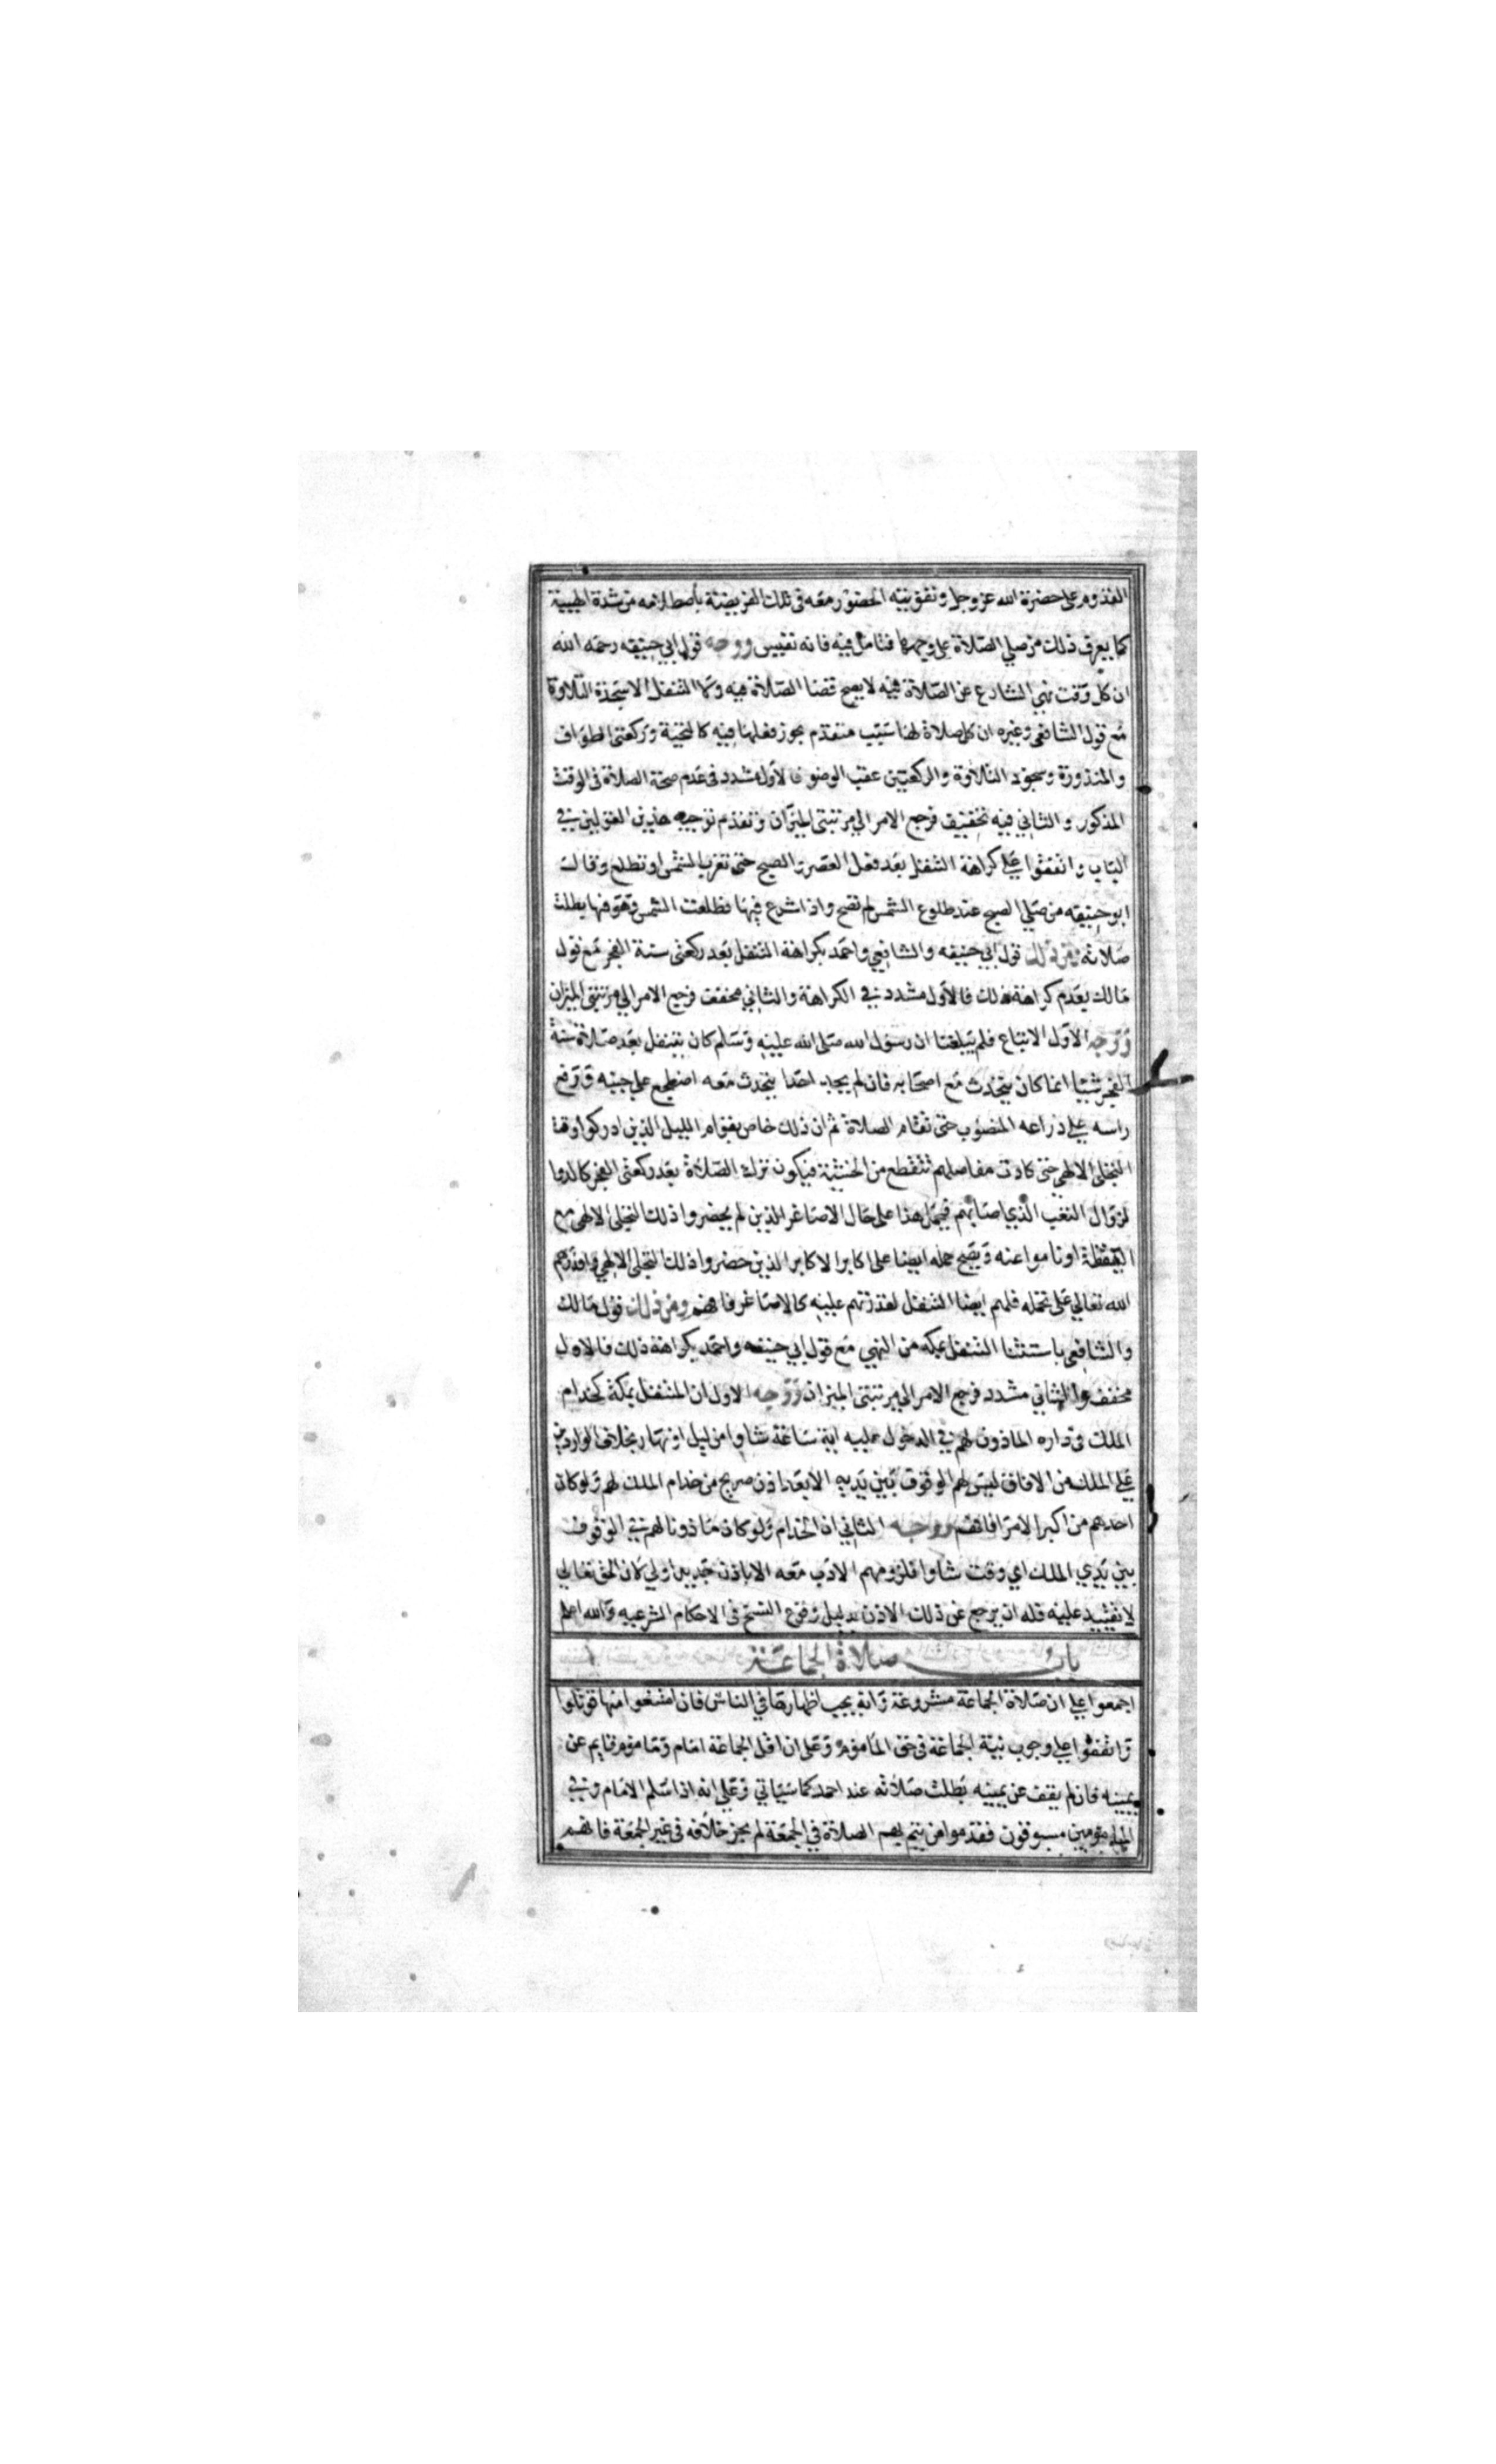 القدوم على حضرة الله عز وجل وتفويته الحضور معه في تلك الفريضة باصطلامه من شدة الهيبة
كما يعرف ذلك من صلى الصلاة على وجهها فتامل فيه فانه نفيس ووجه قول ابي حنيفه رحمه الله
ان كل وقت نهى الشارع عن الصلاة فيه لا يصح قضا الصلاة فيه ولا التنفل الا سجدة التلاوة
مع قول الشافعي وغيره ان كل صلاة لها سبب متقدم يجوز فعلها فيه كالتحية وركعتي الطواف
والمنذورة وسجود التلاوة والركعتين عقب الوضوء فالاول مشدد في عدم صحة الصلاة في الوقت
المذكور والثاني فيه تخفيف فرجع الامر الى مرتبتي الميزان وتقدم توجيه هذين القولين في
الباب واتفقوا على كراهة التنفل بعد فعل العصر والصبح حتى تغرب الشمس او تطلع وقالت
ابو حنيفه من صلى الصبح عند طلوع الشمس لم تصح واذا شرع فيها فطلعت الشمس وهو فيها بطلت
صلاته ومن ذلك قول ابي حنيفه والشافعي واحمد بكراهة التنفل بعد ركعتي سنة الفجر مع قول
مالك بعدم كراهة ذلك فالاول مشدد في الكراهة والثاني مخفف فرجع الامر الى مرتبتي الميزان
ووجه الاول الاتباع فلم يبلغنا ان رسول الله صلى الله عليه وسلم كان يتنفل بعد صلاة سنة
الفجر شيئا انما كان يتحدث مع اصحابه فان لم يجد احدا يتحدث معه اضطجع على جنبه ورفع
راسه على ذراعه المنصوب حتى تقام الصلاة ثم ان ذلك خاص بقوام الليل الذين ادركوا وقت
التجلي الالهي حتى كادت مفاصلهم تتقطع من الخشية فيكون ترك الصلاة بعد ركعتي الفجر كالدوا
لزوال التعب الذي اصابهم فيحمل هذا على حال الاصاغر الذين لم يحضروا ذلك التجلي الالهي مع
اليقظة او ناموا عنه ويصح حمله ايضا على اكابر الاكابر الذين حضروا ذلك التجلي الالهي واقدرهم
الله تعالى على تحمله فلهم ايضا التنفل لقدرتهم عليه كالاصاغر فافهم ومن ذلك قول مالك
والشافعي باستثنا التنفل بمكه من النهي مع قول ابي حنيفه واحمد بكراهة ذلك فالاول
مخفف والثاني مشدد فرجع الامر الى مرتبتي الميزان ووجه الاول ان المتنفل بمكة كخدام
الملك في داره الماذون لهم في الدخول عليه اية ساعة شاوا من ليل او نهار بخلاف الواردين
على الملك من الافاق ليس لهم الوقوف بين يديه الا بعد اذن صريح من خدام الملك لهم ولو كان
احدهم من اكبر الامرا فافهم ووجه الثاني ان الخدام ولو كان ماذونا لهم في الوقوف
بين يدي الملك اي وقت شاوا فلزومهم الادب معه الا باذن جديد اولى كان الحق تعالى
لا تقييد عليه فله ان يرجع عن ذلك الاذن بدليل وقوع النسخ في الاحكام الشرعيه والله اعلم
باب صلاة الجماعة
اجمعوا على ان صلاة الجماعة مشروعة وانه يجب اظهارها في الناس فان امتنعوا منها قوتلوا
واتفقوا على وجوب نية الجماعة في حق الماموم وعلى ان اقل الجماعة امام وماموم قايم عن
يمينه فان لم يقف عن يمينه بطلت صلاته عند احمد كما سياتي وعلى انه اذا سلم الامام وفي
المامومين مسبوقون فقدموا من يتم بهم الصلاة في الجمعة لم يجز خلافه في غير الجمعة فافهم